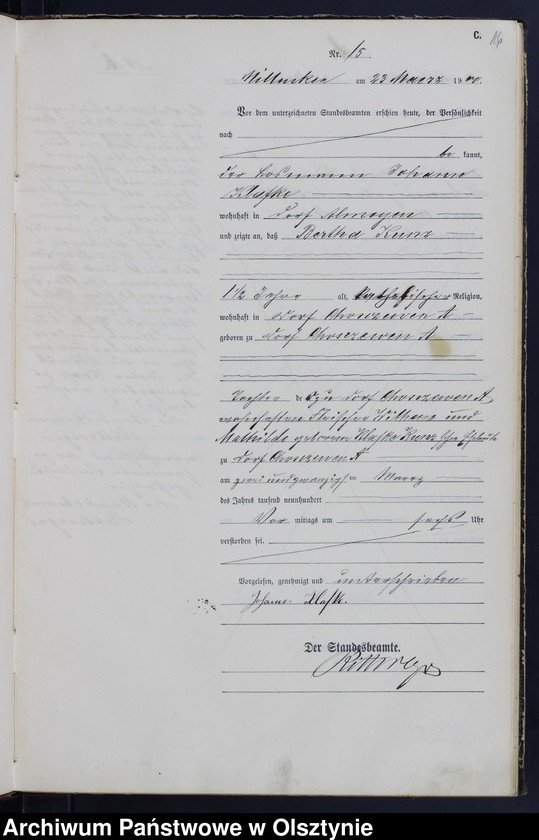 C.
Nr. 15
am 23 Maerz 1900.
Vor dem unterzeichneten Standesbeamten erschien heute, der Persönlichkeit
nach
be kannt,
der Losmann Johann
Klaffke
wohnhaft in Dorf Almoyen
und zeigte an, daß Bertha Kunz
1 1/2 Jahre alt, katholischer Religion,
wohnhaft in Dorf Choszewen A
geboren zu Dorf Choszewen A
Tochter de zu Dorf Choszewen A
wohnhaften Fleischer und
Mathilde geborene Klaffke Kunz
zu Dorf Choszewen A
am zwei und zwanzigsten Maerz
des Jahres tausend neunhundert
Vor mittags um sechs Uhr
verstorben sei.
Vorgelesen, genehmigt und unterschrieben
Johann
Der Standesbeamte.
Archiwum Państwowe w Olsztynie